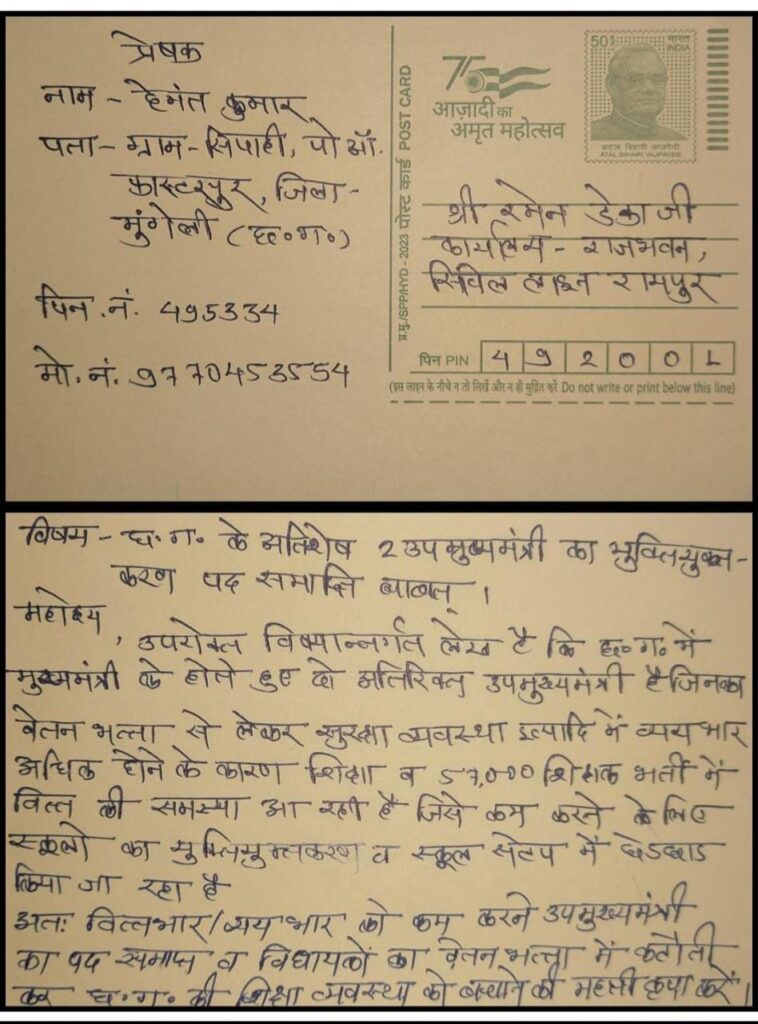 प्रेषक
नाम - हेमंत कुमार
पता - ग्राम - सिपाही, पो ऑ.
फास्टरपुर, जिला -
मुंगेली (छ.ग.)
पिन.नं. 495334
मो.नं. 9770453554
प्र.मु./SPP/HYD - 2023 पोस्ट कार्ड POST CARD
75
आज़ादी का
अमृत महोत्सव
501
भारत
INDIA
अटल बिहारी वाजपेयी
ATAL BIHARI VAJPAYEE
श्री रमेन डेका जी
कार्यालय - राजभवन,
सिविल लाइन रायपुर
पिन PIN 492001
(इस लाइन के नीचे न तो लिखें और न ही मुद्रित करें Do not write or print below this line)
विषय - छ.ग. के अतिशेष 2 उपमुख्यमंत्री का युक्तियुक्त-
करण पद समाप्ति बाबत् ।
महोदय,
उपरोक्त विषयान्तर्गत लेख है कि छ.ग. में
मुख्यमंत्री के होते हुए दो अतिरिक्त उपमुख्यमंत्री है जिनका
वेतन भत्ता से लेकर सुरक्षा व्यवस्था इत्यादि में व्यय भार
अधिक होने के कारण शिक्षा व 57,000 शिक्षक भर्ती में
वित्त की समस्या आ रही है जिसे कम करने के लिए
स्कूलो का युक्तियुक्तकरण व स्कूल सेटप में छेडछाड
किया जा रहा है
अतः वित्तभार/व्यय भार को कम करने उपमुख्यमंत्री
का पद समाप्त व विधायकों का वेतन भत्ता में कटौती
कर छ.ग. की शिक्षा व्यवस्था को बचाने की महती कृपा करें ।